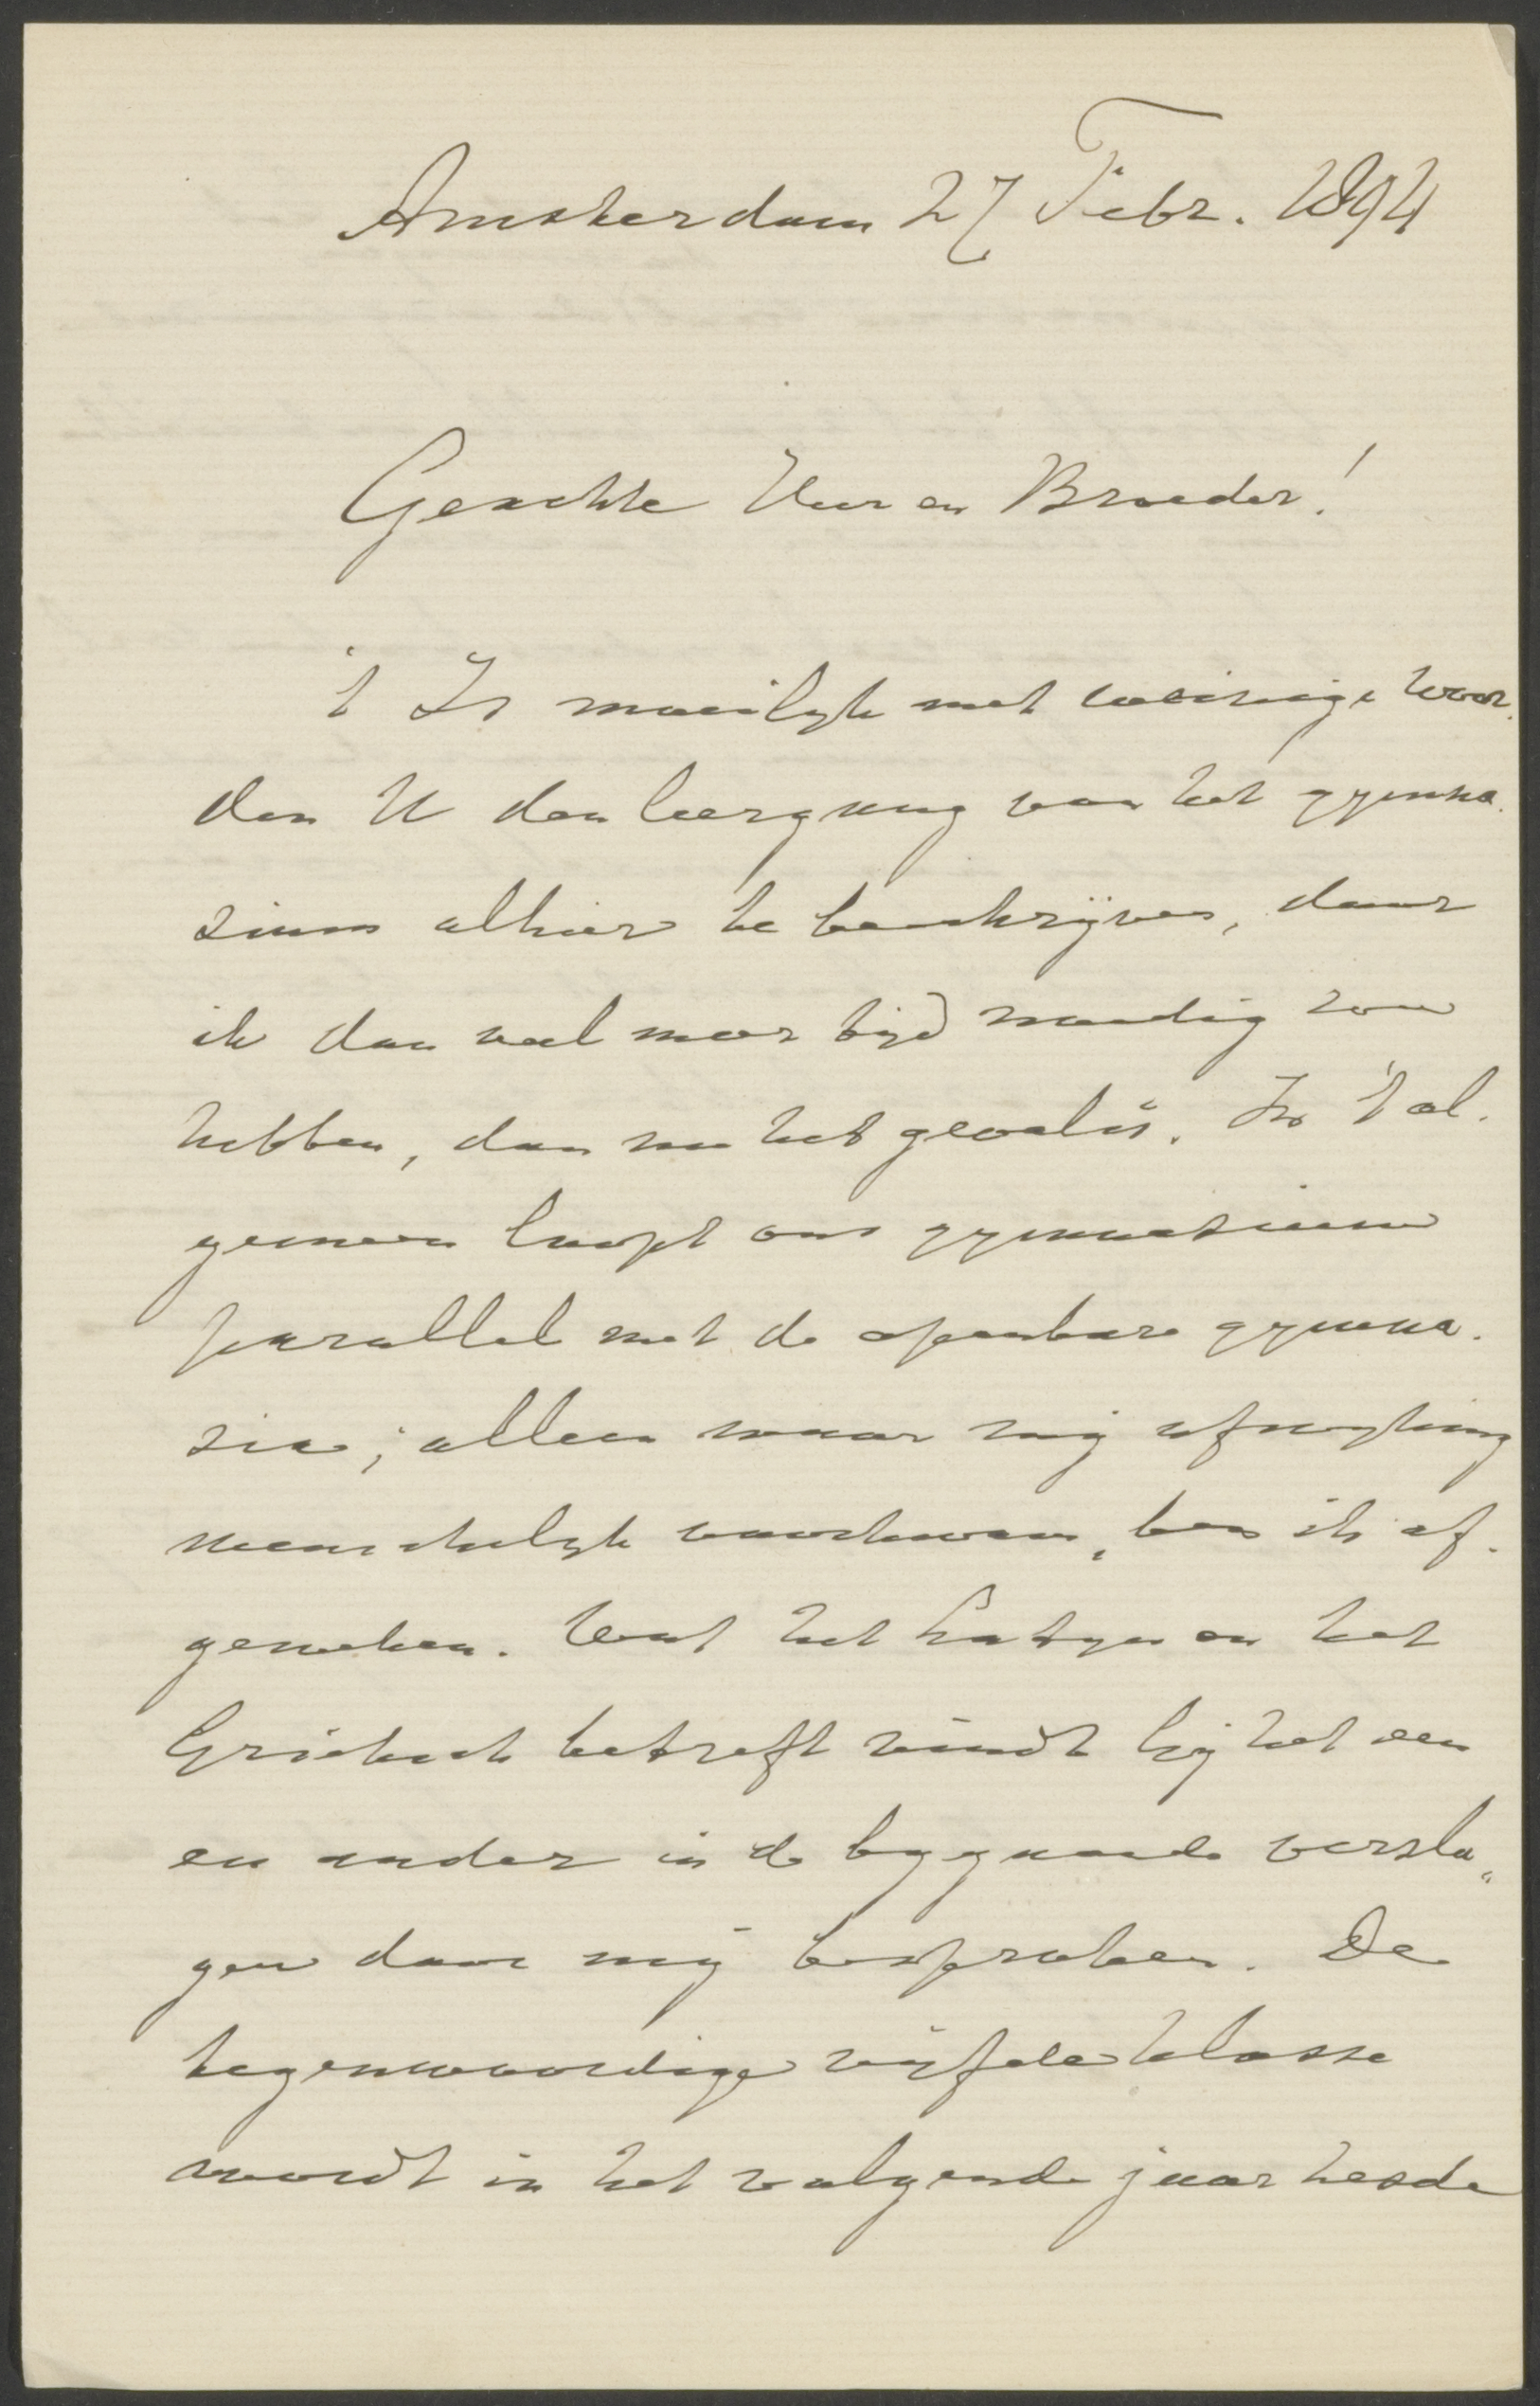 Amsterdam 27 Febr. 1894
Geachte Heer en Broeder!
't Is moeilijk met weinige woor-
den U den leergang van het gymna-
sium alhier te beschrijven, daar
ik dan veel meer tijd noodig zou
hebben, dan nu het geval is. In 't al-
gemeen loopt ons gymnasium
parallel met de openbare gymna-
sia; alleen waar mij afwijking
wenschelijk voorkwam, ben ik af-
geweken. Wat het Latijn en het
Grieksch betreft vindt gij het een
en ander in de bijgaande versla-
gen door mij besproken. De
tegenwoordige vijfde klasse
wordt in het volgende jaar zesde